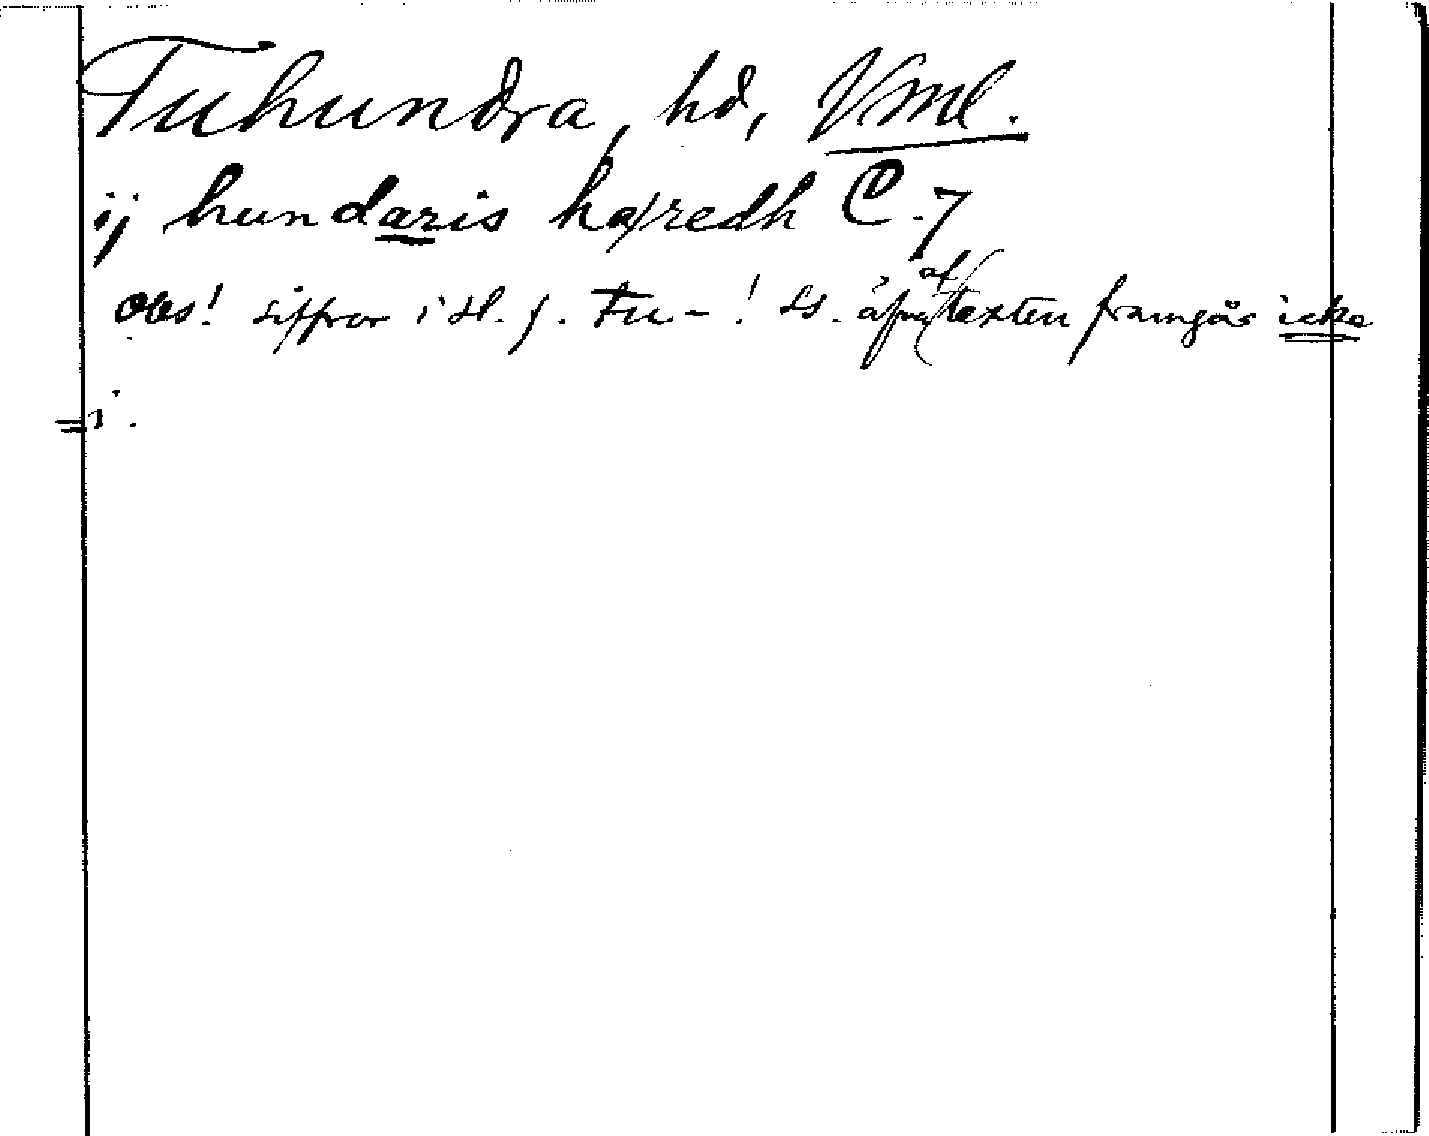 Tuhundra, hd, Vml.
ij hundaris hæredh C. 7
Obs! siffror i st. f. Tu-! af texten framgår icke